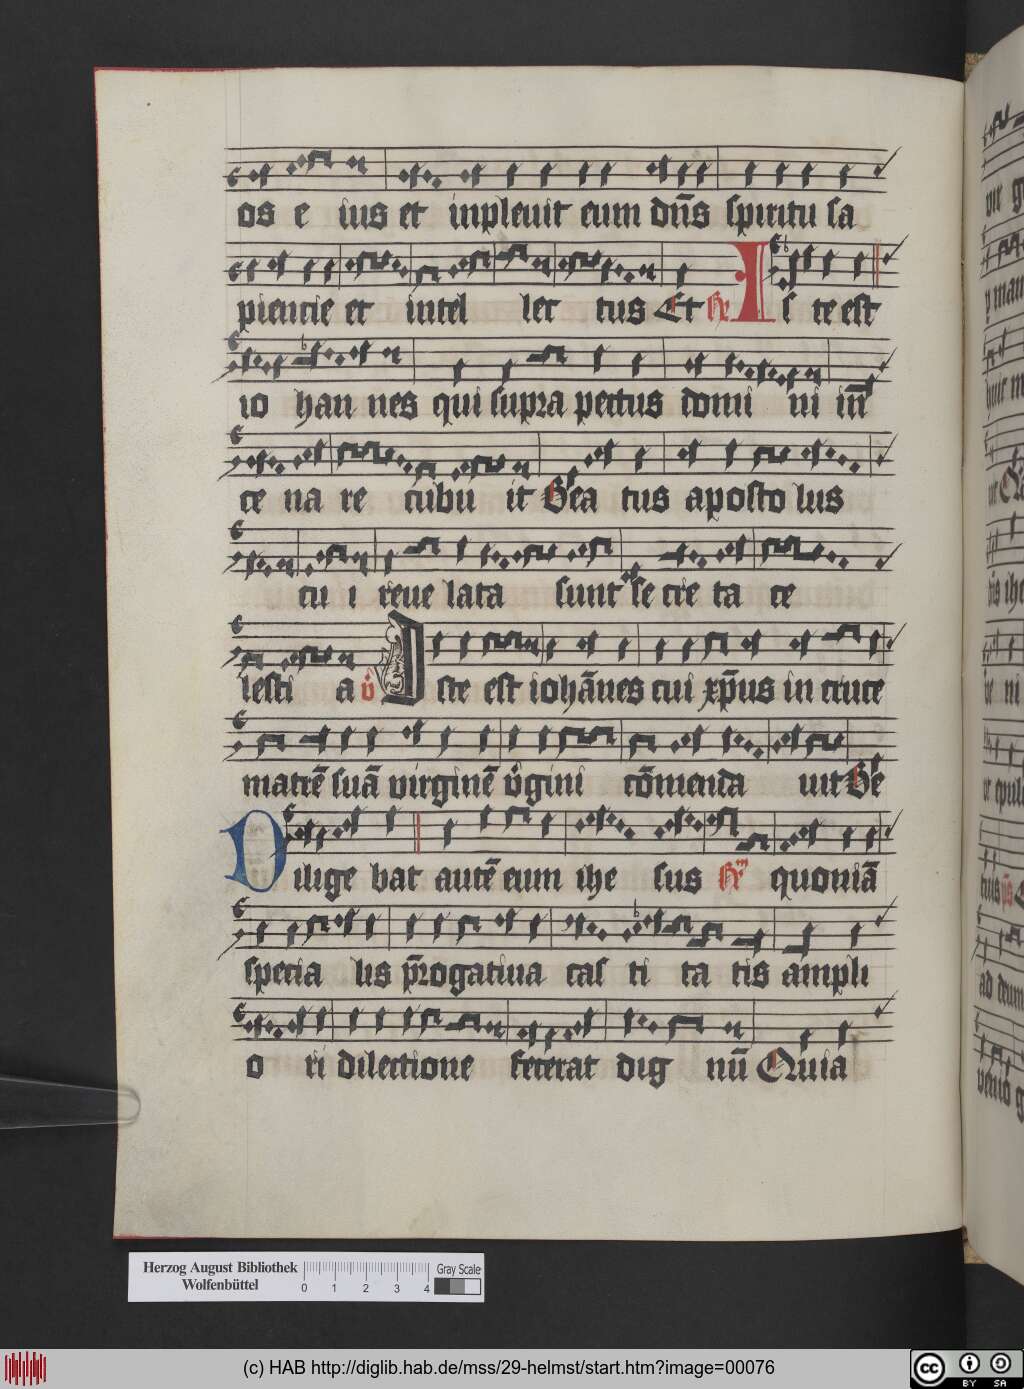 os e ius et inpleuit eum dn̄s spiritu sa
piencie et intel lec tus Et R Is te est
io han nes qui supra pectus domi ni in̄
ce na re cubu it Bea tus aposto lus
cu i reue lata sunt se cre ta ce
lesti a v̊ Iste est iohānes cui xp̄us in cruce
matrē suā virginē v̊gini cōmenda uit Be
Dilige bat autē eum ihe sus R quoniā
specia lis p̄rogatiua cas ti ta tis ampli
o ri dilectione fecerat dig nū Quia
Herzog August Bibliothek
Wolfenbüttel
0 1 2 3 4
Gray Scale
(c) HAB http://diglib.hab.de/mss/29-helmst/start.htm?image=00076
cc BY SA